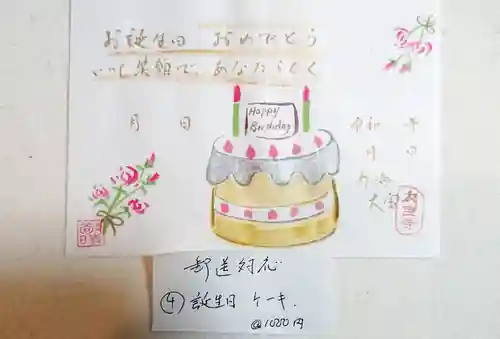 お誕生日 おめでとう
いつも笑顔で、あなたらしく
Happy
Birthday
月 日
令和 年
月 日
郵送対応
④ 誕生日 ケーキ.
@1000円